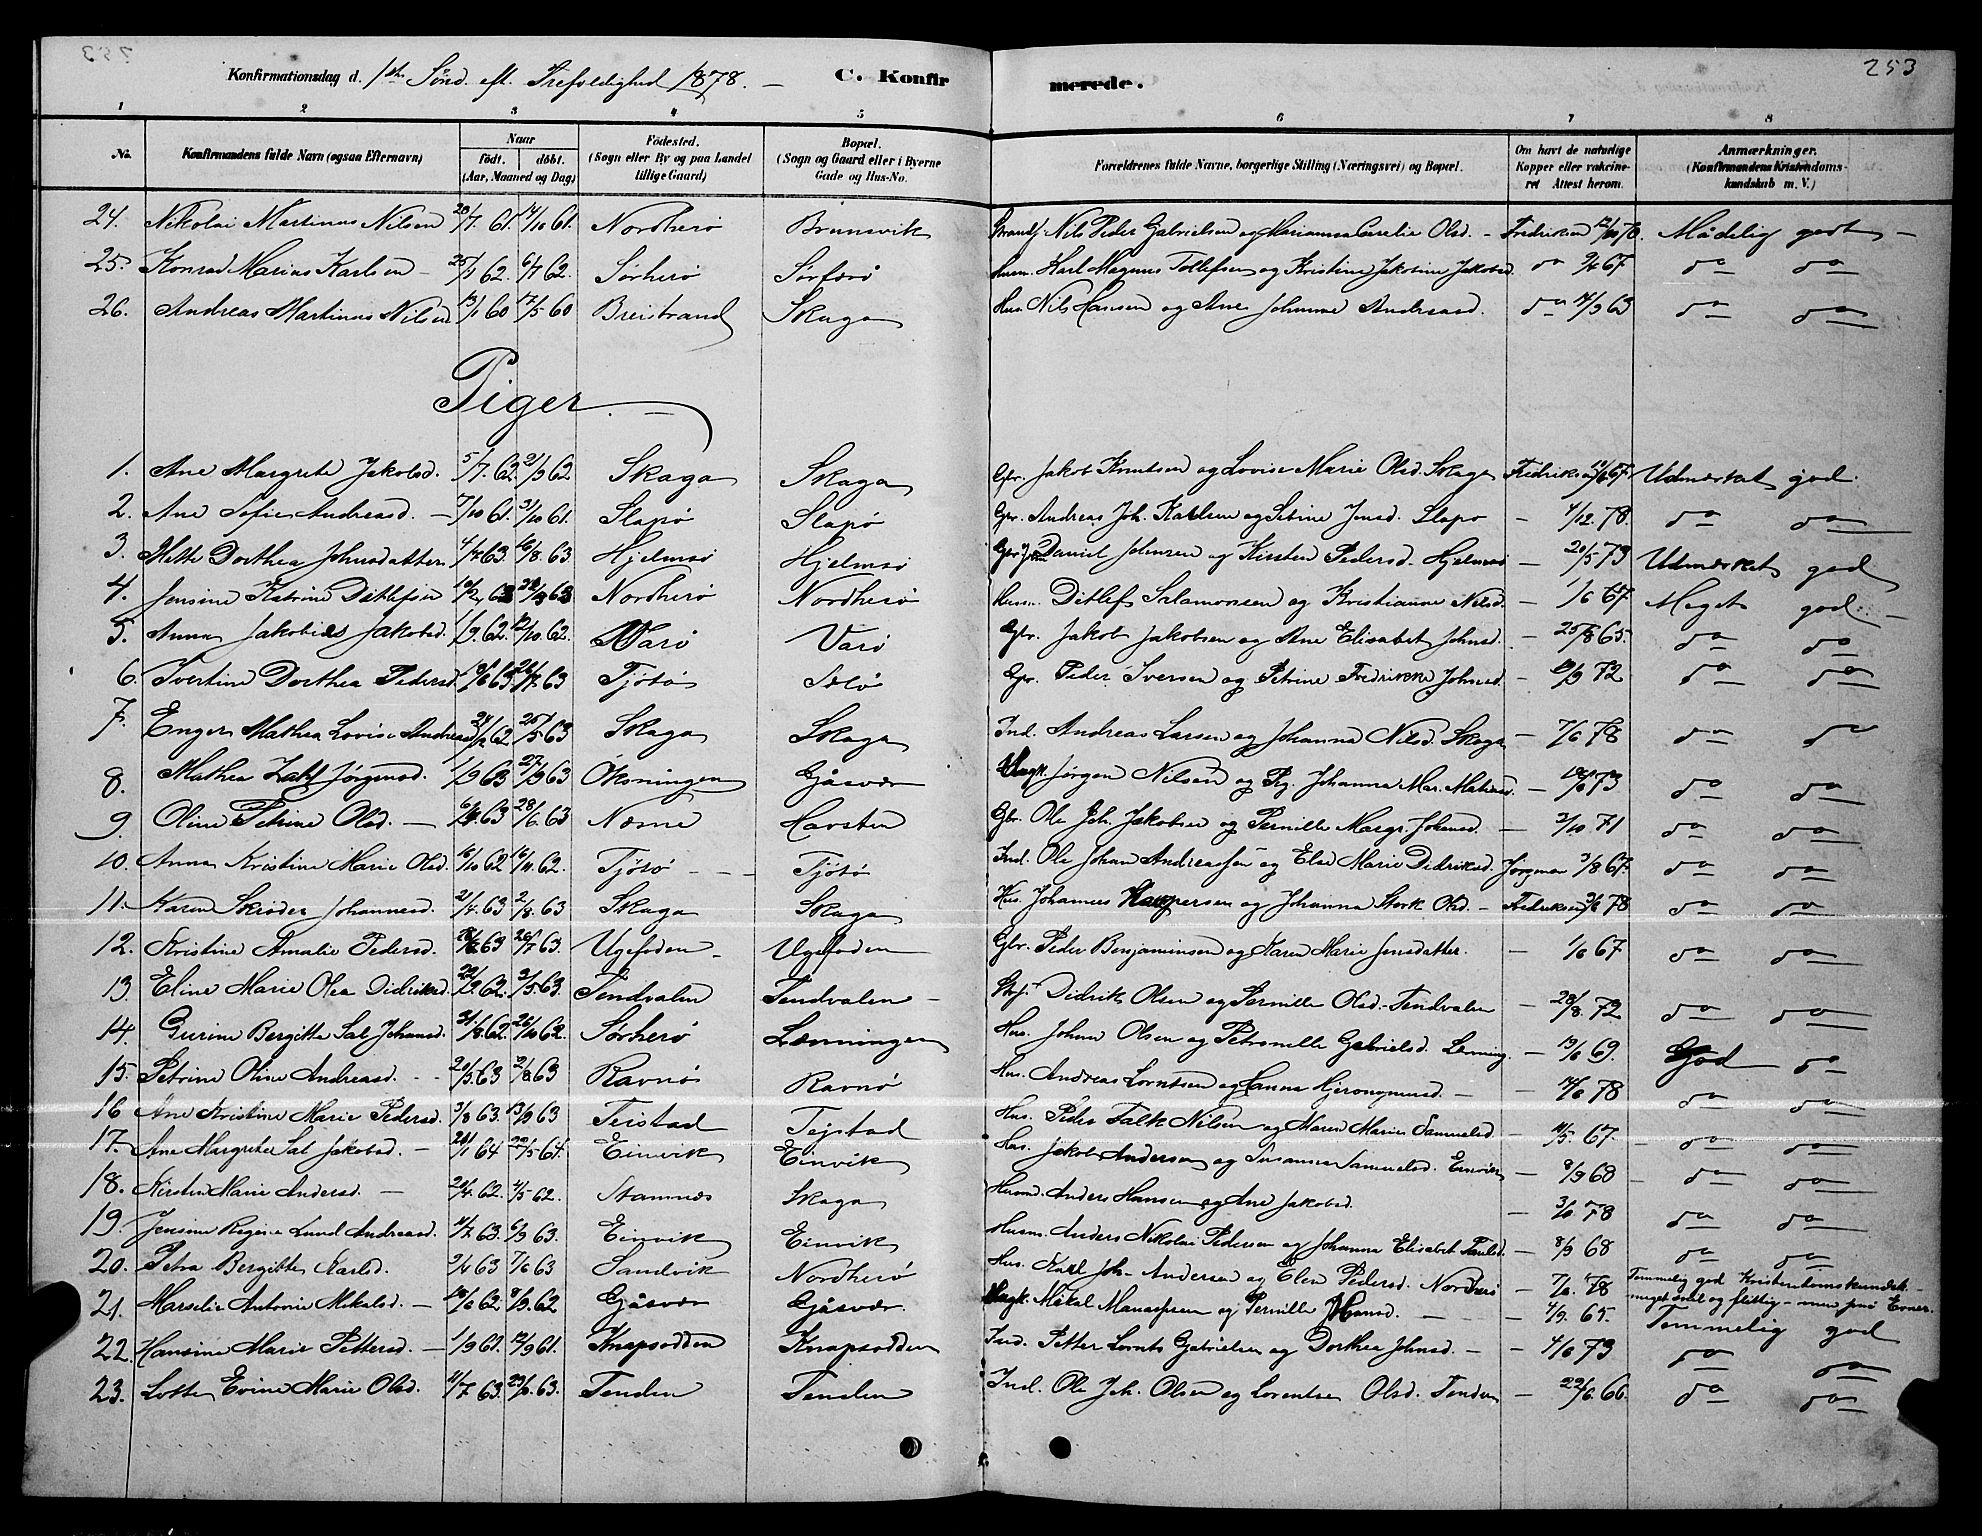 253
Konfirmationsdag d. 1ste Sönd. eft. Trefoldighed 1878. — C. Konfirmerede.
1 2 3 4 5 6 7 8
No. Konfirmandens fulde Navn (ogsaa Efternavn) Naar födt. döbt. (Aar, Maaned og Dag) Födested. (Sogn eller By og paa Landet tillige Gaard) Bopæl. (Sogn og Gaard eller i Byerne Gade og Hus-No. Forældrenes fulde Navne, borgerlige Stilling (Næringsvei) og Bopæl. Om havt de naturlige Kopper eller vakcineret Attest herom. Anmærkninger. (Konfirmandens Kristendomskundskab m. V.)
24. Nikolai Martinus Nilsen 61. 61. Nordherö Brunsvik Nils Peder Gabrielsen og Olsd. — Fredriksen Mådelig godt —
25. Konrad Marius Karlsen — 62. 62. Sörherö Husm. Karl Magnus Tollefsen og Kristine Jakobine Jakobsd. do 67 do do
26. Andreas Martinus Nilsen 13/1 60 17/5 60 Breistrand Skaga Hus. Nils Hansen og Ane Johanna Andreasd. do 63 do do
Piger. —
1. Ane Margrete Jakobsd. 5/7. 62. 21/9 62 Skaga Skaga Gbr. Jakob Knutsen og Lovise Marie Olsd. Skaga Fredriksen 67. Udmærket god.
2. Ane Sofie Andreasd. — 7/10 61. 31/10 61. Slapö Slapö Gbr. Andreas Joh. Karlsen og Petrine Jensd. Slapö — 4/12. 78. do do
3. Mette Dorthea Johnsdatter 63. 16/8. 63 Hjelmsö Hjelmsö Daniel Johnsen og Kirsten Pedersd. Hjelmsö — 20/5 73 Udmærket god
4. Jensine Katrine Ditlefsen 63 63 Nordherö Nordherö Husm. Ditlef Salamonsen og Kristianne Nilsd. — 1/6 67. Meget god —
5. Anna Jakobine Jakobsd. 1/9. 62. 12/10. 62. Varö Varö Gbr. Jakob Jakobsen og Ane Elisabet Johnsd. — 25/8 65. do do
6. Ivertine Dorthea Pedersd. 63. 63 Tjötö Gbr. Peder Iversen og Petrine Fredrikke Johnsd. — 72 do do
7. Enger Mathea Lovise Andreasd. 62 25/5 63 Skaga Skaga Ind. Andreas Larsen og Johanna Nilsd. Skaga — 7/6 78 do do
8. Mathea Zahl Jörgensd. 1/9 63 27/9 63 Öksningen Gåsvær Jörgen Nilsen og Johanna Mar. — 73 do do
9. Oline Petrine Olsd. — 63 28/6. 63 Næsne Havsten Gbr. Ole Joh. Jakobsen og Pernille Margr. Johansd. — 2/10 71 do do
10. Anna Kristine Marie Olsd. 16/10 62 62. Tjötö — — — Tjötö Ind. Ole Johan Andreassen og Else Marie Didriksd. Jörgensen 3/8 67. do do
11. Karen Skröder Johannesd. 2/4. 63 2/8. 63 Skaga Skaga Hus. Johannes Kaspersen og Johanna Stork Olsd. — Fredriksen 78 do do
12. Kristine Amalie Pedersd. 63 26/7 63. Ugefoden — Ugefoden Gbr. Peder Benjaminsen og Karen Marie Jensdatter. — 1/6 67 do do
13. Eline Marie Olea Didriksd. 62. 3/5 63. Tendvalen Tendvalen — Didrik Olsen og Pernille Olsd. Tendvalen — 28/8. 72 do do
14. Gurine Bergitte Sal Johansd. 31/8. 62. 26/10 62. Sörherö Lænningen Hus. Johan Olsen og Petronelle Gabrielsd. Lenning. — 13/6 69. God do
15. Petrine Oline Andreasd. — 20/5. 63 2/8 63 Ravnö Ravnö Hus. Andreas Lorntsen og Hanna Hjeronymusd. — 78 do do
16 Ane Kristine Marie Pedersd. 3/8 63. 13/9 63 Teistad Tejstad Hus. Peder Falk Nilsen og Maren Marie Sammelsd. — 67. — do do
17. Ane Margrete Sal Jakobsd. — 64 22/5 64. Einvik Einvik Hus. Jakob Andersen og Susanna Sammelsd. Einvik — 8/9 68 — do do
18. Kirsten Marie Andersd. — 62. 4/5 62. Stamnes Skaga Husm. Anders Hansen og Ane Jakobsd. — 3/6 78 do do
19. Jensine Regine Lund Andreasd. 63. 6/9 63. Einvik Einvik Husm. Anders Nikolai Pedersen og Johanna Elisabet Paulsd. — 8/9 68 do do
20. Petra Bergitte Karlsd. 2/4 63 7/6 63 Sandvik Nordherö Hus. Karl Joh. Andersen og Elen Pedersd. Nordherö — 7/6. 78 Temmelig god Kristendomskundsk. — meget snil og flittig — men små Evner.
21. Marselie Antonie Mikalsd. — 62. 8/9. 62 Gåsvær Gåsvær. Mikal Manassesen og Pernille Hansd. — 4/9. 65. Temmelig god
22. Hansine Marie Pettersd. — 1/9 61. 12/9 61. Knapsodden Knapsodden Ind. Petter Lornts Gabrielsen og Dorthea Johnsd. — — 4/6 73 do do
23. Lotte Evine Marie Olsd. 11/7 63. 63. Tenden Tenden Ind. Ole Joh. Olsen og Lorentse Olsd. Tenden — 22/6. 66. do do